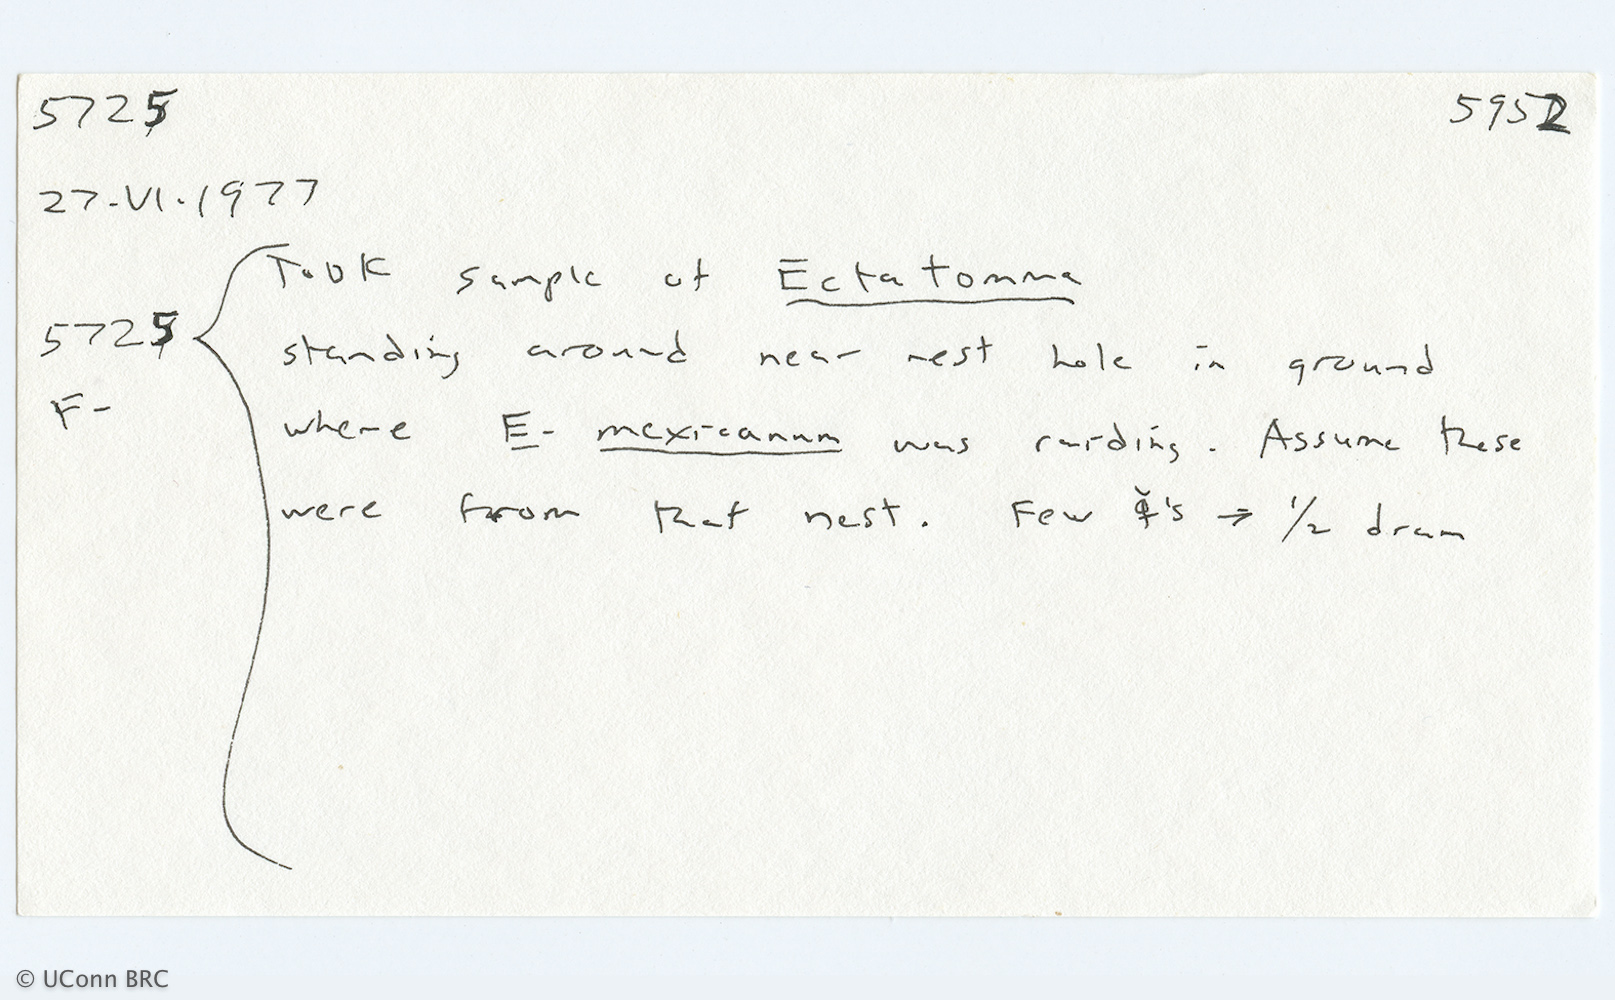 5725 5952
27-VI-1977
Took sample of Ectatomma
5725 standing around near nest hole in ground
F- where E- mexicanum was raiding. Assume these
were from that nest. Few ☿'s → 1/2 dram
© UConn BRC